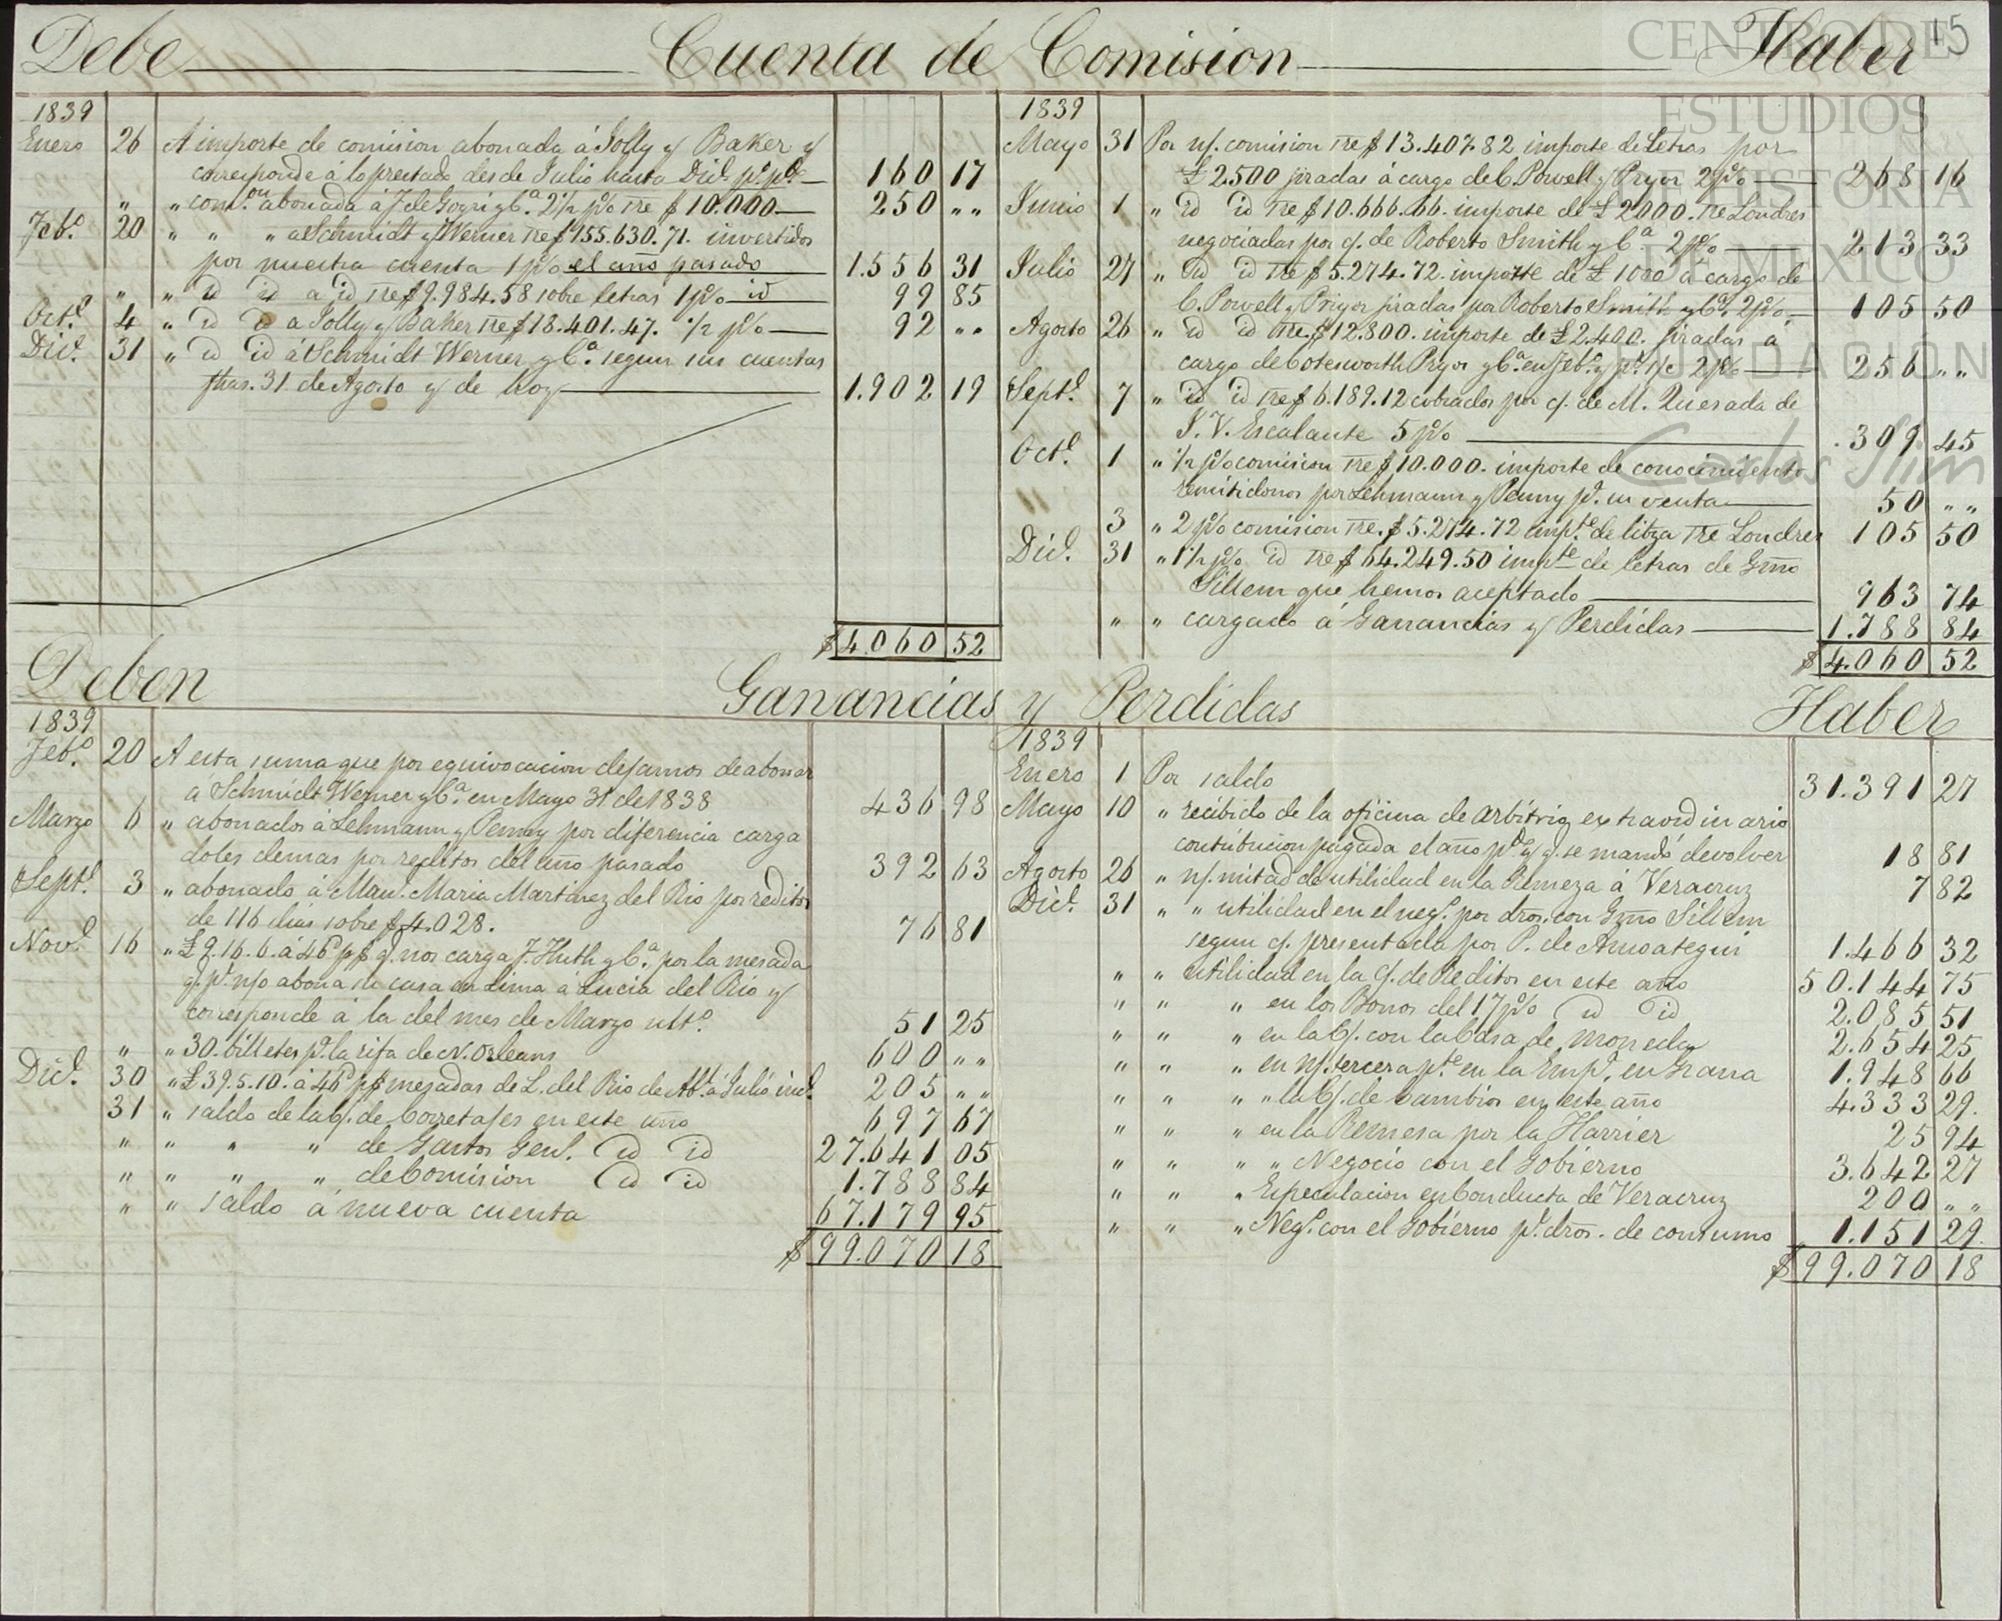 15
Debe Cuenta de Comision Haber
1839
Enero 26 A importe de comision abonada á Jolly y Baker y
corresponde á lo prestado desde Julio hasta Dice. pº. pdº. 160 17
" " comon. abonada á J de Goyri y Ca. 2 1/2 p% Tre $10.000 250 ""
Febo. 20 " " " a Schmidt y Werner Tre $155.630.71. invertidos
por nuestra cuenta 1 p% el año pasado 1.556 31
" " id id a id Tre $9.984.58 sobre letras 1 p% id 99 85
Octe. 4 " id id a Jolly y Baker Tre $18.401.47. 1/2 p% 92 ""
Dice. 31 " id id á Schmidt Werner y Ca. segun sus cuentas
fhas. 31 de Agosto y de hoy 1.902 19
$4.060 52
1839
Mayo 31 Por n/. comision Tre $13.407.82 importe de Letras por
£2500 jiradas á cargo de C. Powell y Pryor 2 p% 268 16
Junio 1 " id id Tre $10.666.66. importe de £2000. Tre Londres
negociadas por c/. de Roberto Smith y Ca. 2 p% 213 33
Julio 27 " id id Tre $5.274.72. importe de £1000 á cargo de
C. Powell y Pryor jiradas por Roberto Smith y Ca. 2 p% 105 50
Agosto 26 " id id Tre. $12.800. importe de £2.400. jiradas á
cargo de Cotesworth Pryor y Ca. en Febo. y pr. s/c 2 p% 256 ""
Septe. 7 " id id Tre $6.189.12 cobrados por c/. de M. Quesada de
J. V. Escalante 5 p% 309 45
Octe. 1 " 1/2 p% comision Tre $10.000. importe de conocimiento
remitidonos por Lehmann y Penny pa. su venta 50 ""
" 3 " 2 p% comision Tre. $5.274.72 impte. de libza Tre Londres 105 50
Dice. 31 " 1 1/2 p% id Tre $64.249.50 impte de letras de Gmo
Sillem que hemos aceptado 963 74
" " cargado á Ganancias y Perdidas 1.788 84
$4.060 52
Deben Ganancias y Perdidas Haber
1839
Febo. 20 A esta suma que por equivocacion dejamos de abonar
á Schmidt Werner y Ca. en Mayo 31 de 1838 436 98
Marzo 6 " abonados á Lehmann y Penny por diferencia carga
doles demas por reditos del año pasado 392 63
Septe. 3 " abonado á Man. Maria Martinez del Rio por reditos
de 116 dias sobre $4.028. 76 81
Nove. 16 " £9.16.6. á 46d p$ q. nos carga F. Huth y Ca. por la mesada
q. pr. n/o abona su casa en Lima á Lucia del Rio y
corresponde á la del mes de Marzo ulto. 51 25
" " 30. billetes pa. la rifa de N. Orleans 600 ""
Dice. 30 " £39.5.10. á 46d p$ mesadas de L. del Rio de Abl. á Julio incl. 205 ""
31 " saldo de la c/. de Corretajes en este año 697 67
" " " " de Gastos Genl. id id 27.641 05
" " " " de Comision id id 1.788 84
" " saldo á nueva cuenta 67.179 95
$99.070 18
1839
Enero 1 Por saldo 31.391 27
Mayo 10 " recibido de la oficina de arbitrio extraordinario
contribucion pagada el año pdo. y q. se mandó devolver 18 81
Agosto 26 " n/. mitad de utilidad en la Remeza á Veracruz 7 82
Dice. 31 " " utilidad en el nego. por dros. con Gmo Sillem
segun c/. presentada por P. de Amoategui 1.466 32
" " utilidad en la c/. de Reditos en este año 50.144 75
" " " en los Bonos del 17 p% id id 2.085 51
" " " en la C/. con la Casa de moneda 2.654 25
" " " en n/. tercera pte. en la Empa. en Grana 1.948 66
" " " " la C/. de Cambios en este año 4.333 29.
" " " en la Remesa por la Harrier 25 94
" " " " Negocio con el Gobierno 3.642 27
" " " Especulacion en Conducta de Veracruz 200 ""
" " " Nego. con el Gobierno pr. dros. de consumo 1.151 29.
$99.070 18
CENTRO DE
ESTUDIOS
DE HISTORIA
DE MEXICO
FUNDACION
Carlos Slim